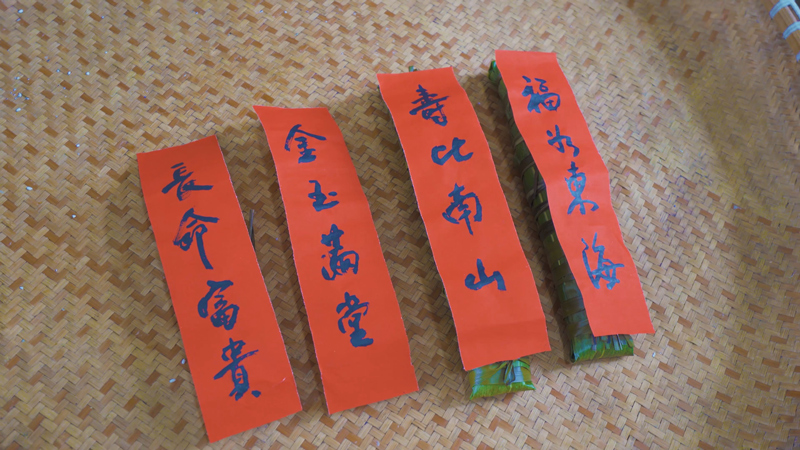 福如東海
壽比南山
金玉滿堂
長命富貴